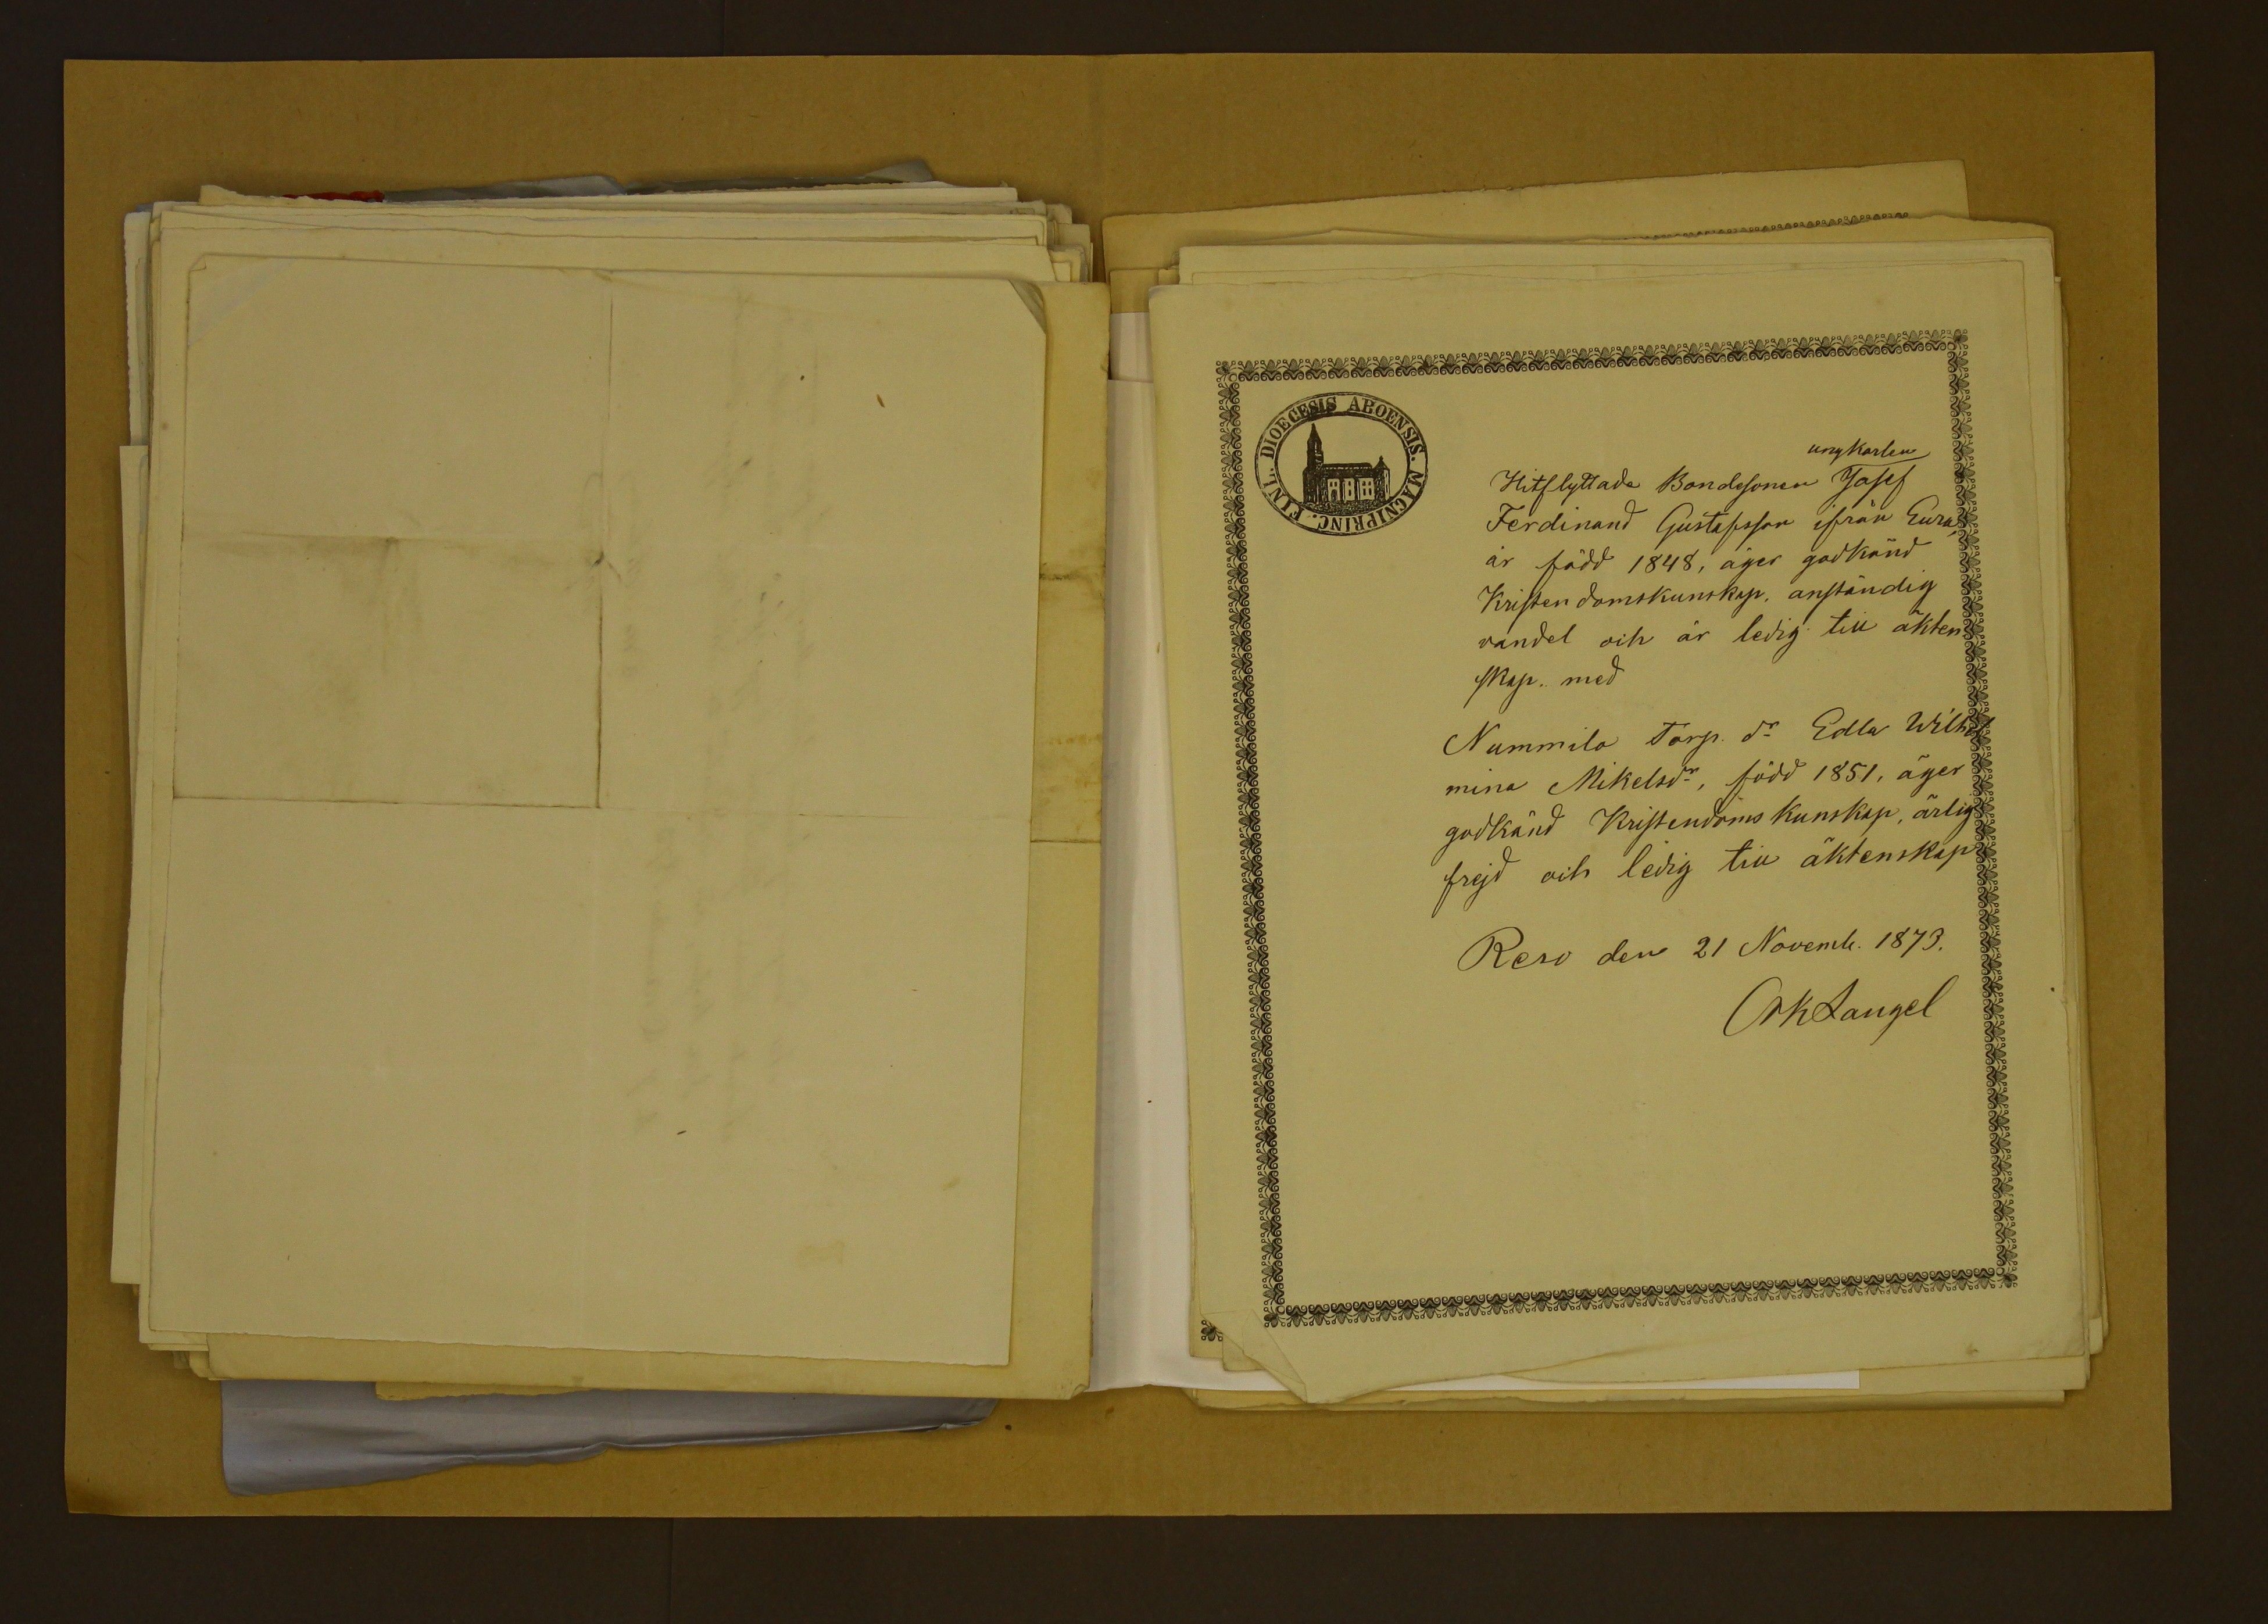 DIOECESIS ABOENSIS. MAGNIPRINC. FINL.
ungkarlen
Hitflyttade Bondesonen Josef
Ferdinand Gustafsson ifrån Eura,
är född 1848, äger godkänd
Kristendomskunskap, anständig
vandel och är ledig till äkten
skap. med
Nummila Torp. dr Edla Wilhel
mina Mikelsdr, född 1851, äger
godkänd Kristendomskunskap, ärlig
frejd och ledig till äktenskap
Reso den 21 Novemb. 1873.